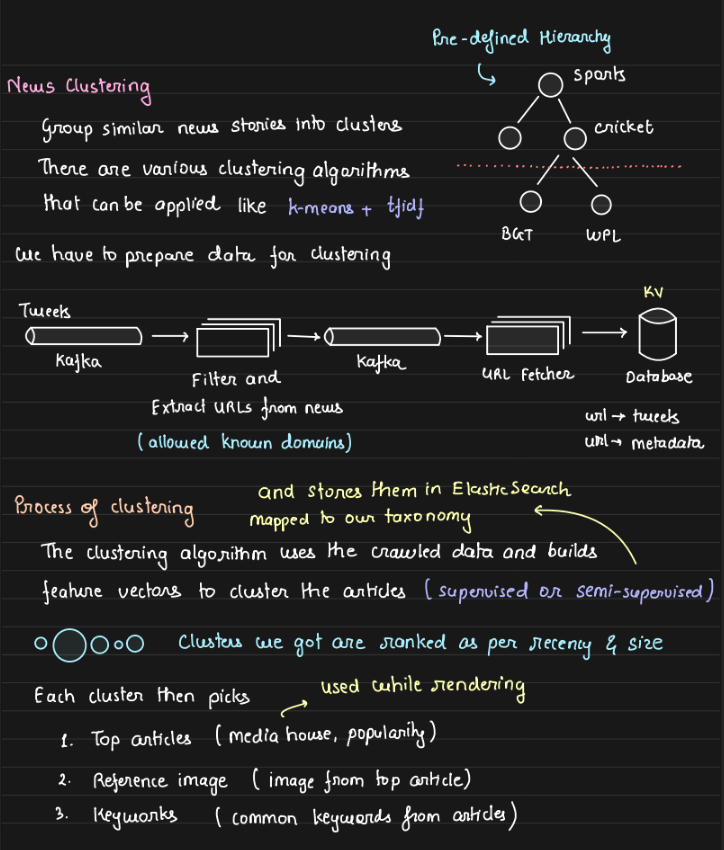 Pre-defined Hierarchy
sports
News Clustering
Group similar news stories into clusters
cricket
There are various clustering algorithms
that can be applied like k-means + tfidf
BGT WPL
we have to prepare data for clustering
KV
Tweets
Kafka
Filter and
Extract URLs from news
(allowed known domains)
Kafka
URL Fetcher
Database
url → tweets
url → metadata
Process of clustering
and stores them in ElasticSearch
mapped to our taxonomy
The clustering algorithm uses the crawled data and builds
feature vectors to cluster the articles (supervised or semi-supervised)
Clusters we got are ranked as per recency & size
Each cluster then picks
used while rendering
1. Top articles (media house, popularity)
2. Reference image (image from top article)
3. Keyworks (common keywords from articles)